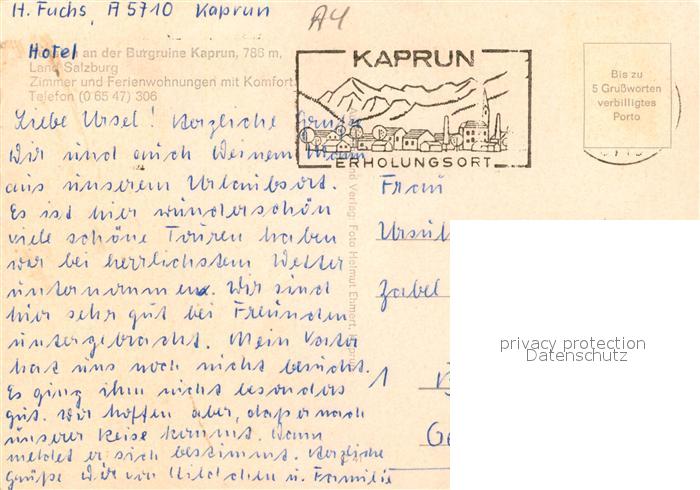 H. Fuchs, A 5710 Kaprun
A4
Hotel an der Burgruine Kaprun, 786 m,
Land Salzburg
Zimmer und Ferienwohnungen mit Komfort,
Telefon (0 65 47) 306
KAPRUN
ERHOLUNGSORT
Bis zu
5 Grußworten
verbilligtes
Porto
Liebe Ursel! Herzliche Grüße
Dir und auch Deinem Mann
aus unserem Urlaubsort.
Es ist hier wunderschön
viele schöne Touren haben
wir bei herrlichstem Wetter
unternommen. Wir sind
hier sehr gut bei Freunden
untergebracht. Mein Vater
hat uns noch nicht besucht.
Es ging ihm nicht besonders
gut. Wir hoffen aber, daß er nach
unserer Reise kommt. Dann
meldet er sich bestimmt. Herzliche
Grüße Dir von Hildchen u. Familie
und Verlag: Foto Helmut Ehmert, Kaprun
Frau
Ursul
Zabel
1
Ge
privacy protection
Datenschutz